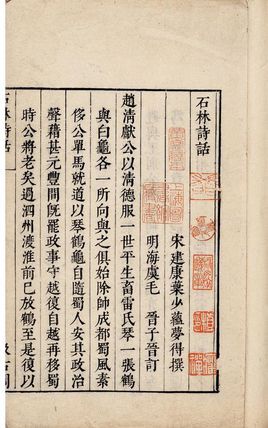 石林詩話
宋建康葉少蘊夢得撰
明海虞毛 晉子晉訂
趙清獻公以清德服一世平生畜雷氏琴一張鶴
與白龜各一所向與之俱始除帥成都蜀風素
侈公單馬就道以琴鶴龜自隨蜀人安其政治
聲藉甚元豐間既罷政事守越復自越再移蜀
時公將老矣過泗州渡淮前已放鶴至是復以
石林詩話
汲古閣